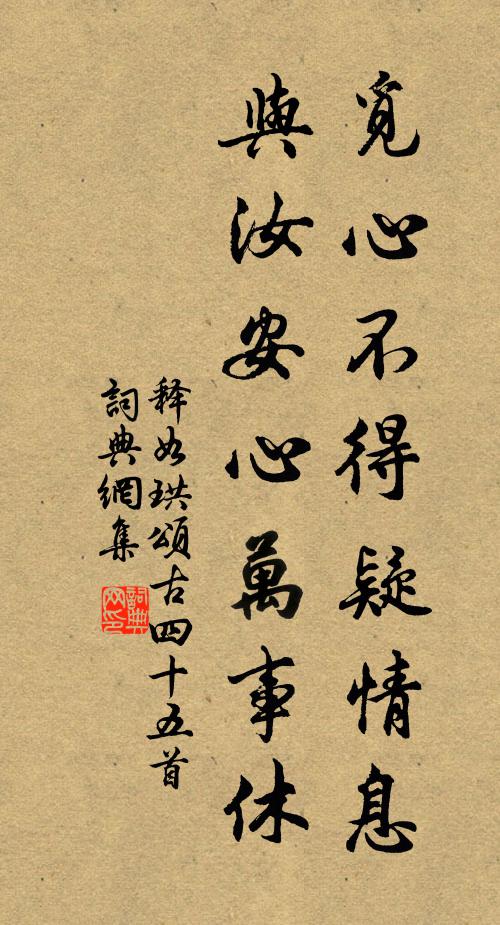 覓心不得疑情息
與汝安心萬事休
释如珙頌古四十五首
詞典網集
詞典
网印